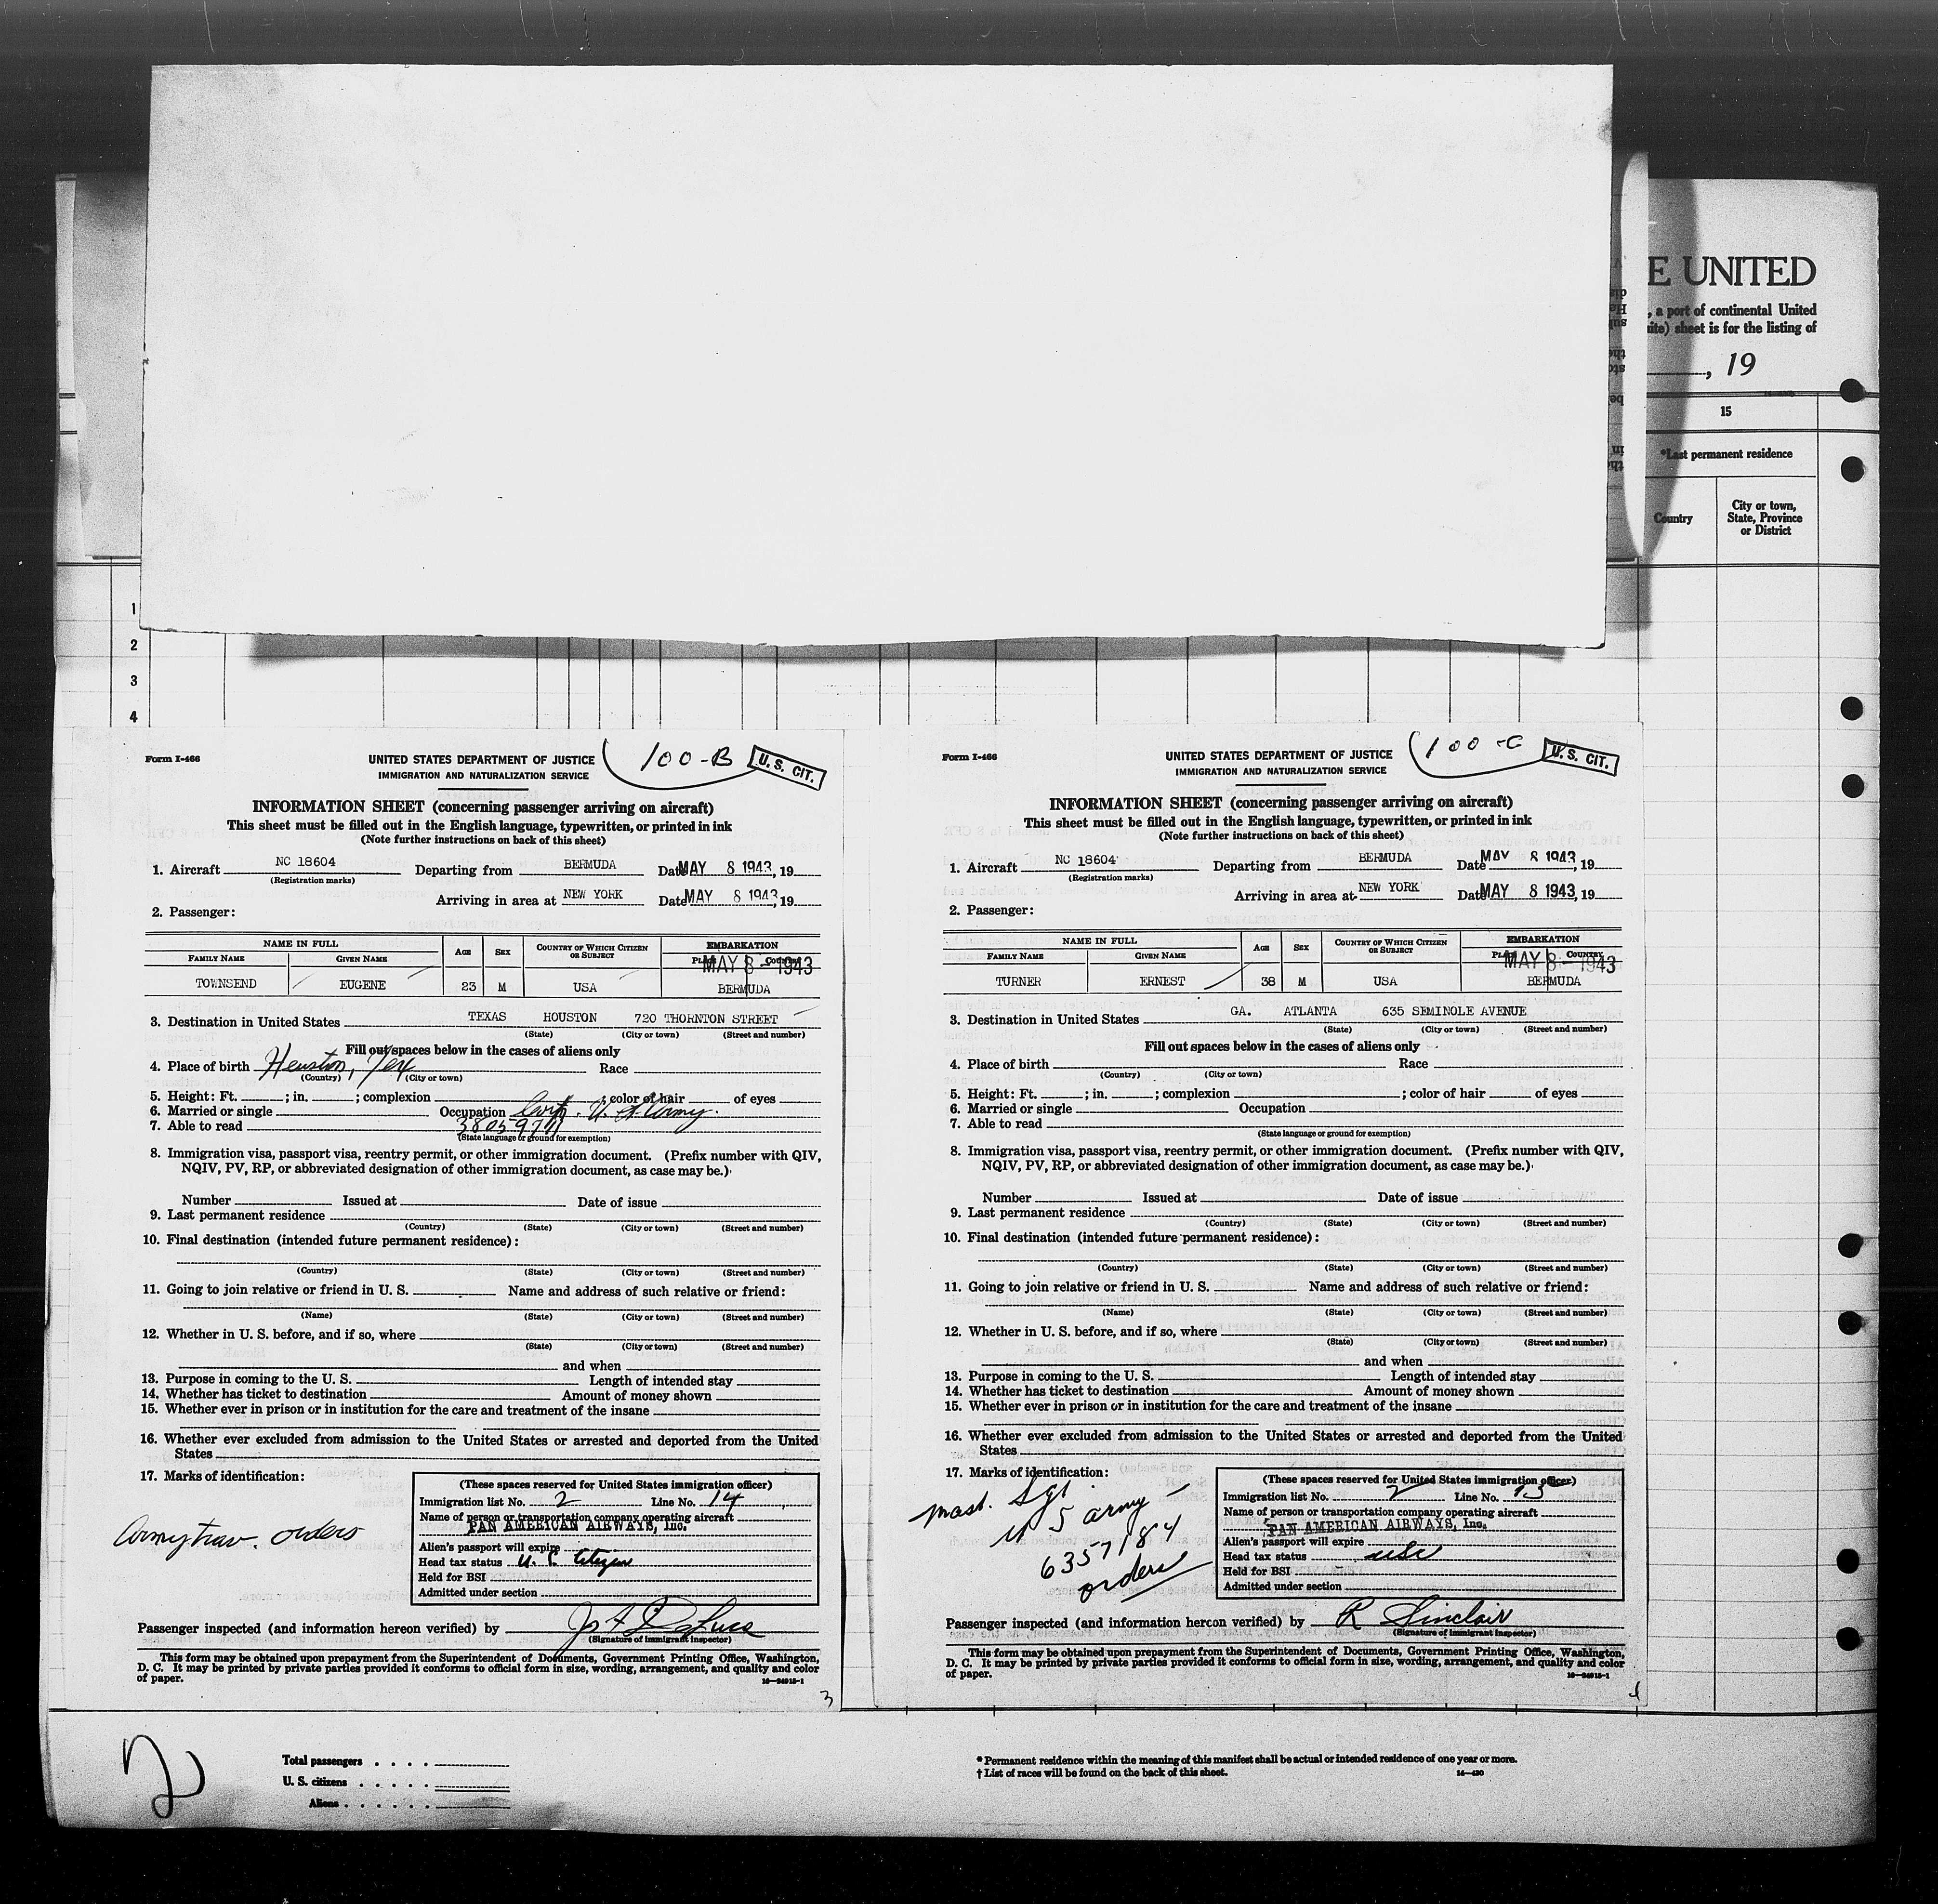 E UNITED
, a port of continental United
ite) sheet is for the listing of
, 19
15
*Last permanent residence
Country
City or town,
State, Province
or District
1
2
3
4
Form I-466
100-B
U. S. CIT.
UNITED STATES DEPARTMENT OF JUSTICE
IMMIGRATION AND NATURALIZATION SERVICE
INFORMATION SHEET (concerning passenger arriving on aircraft)
This sheet must be filled out in the English language, typewritten, or printed in ink
(Note further instructions on back of this sheet)
1. Aircraft NC 18604 Departing from BERMUDA Date MAY 8 1943, 19
(Registration marks)
Arriving in area at NEW YORK Date MAY 8 1943, 19
2. Passenger:
NAME IN FULL AGE SEX COUNTRY OF WHICH CITIZEN OR SUBJECT EMBARKATION
FAMILY NAME GIVEN NAME PLACE COUNTRY
MAY 8 - 1943
TOWNSEND EUGENE 23 M USA BERMUDA
3. Destination in United States TEXAS HOUSTON 720 THORNTON STREET
(State) (City or town) (Street and number)
Fill out spaces below in the cases of aliens only
4. Place of birth Houston, Tex Race
(Country) (City or town)
5. Height: Ft. ; in. ; complexion ; color of hair of eyes
6. Married or single Occupation U. S. Army.
7. Able to read
(State language or ground for exemption)
8. Immigration visa, passport visa, reentry permit, or other immigration document. (Prefix number with QIV,
NQIV, PV, RP, or abbreviated designation of other immigration document, as case may be.)
Number Issued at Date of issue
9. Last permanent residence
(Country) (State) (City or town) (Street and number)
10. Final destination (intended future permanent residence):
(Country) (State) (City or town) (Street and number)
11. Going to join relative or friend in U. S. Name and address of such relative or friend:
(Name) (State) (City or town) (Street and number)
12. Whether in U. S. before, and if so, where
(State) (City or town) (Street and number)
and when
13. Purpose in coming to the U. S. Length of intended stay
14. Whether has ticket to destination Amount of money shown
15. Whether ever in prison or in institution for the care and treatment of the insane
16. Whether ever excluded from admission to the United States or arrested and deported from the United
States
17. Marks of identification:
Army trav. orders
(These spaces reserved for United States immigration officer)
Immigration list No. 2 Line No. 14
Name of person or transportation company operating aircraft
PAN AMERICAN AIRWAYS, Inc.
Alien's passport will expire
Head tax status U. S. Citizen
Held for BSI
Admitted under section
Passenger inspected (and information hereon verified) by Jos A DeLuca
(Signature of immigrant inspector)
This form may be obtained upon prepayment from the Superintendent of Documents, Government Printing Office, Washington,
D. C. It may be printed by private parties provided it conforms to official form in size, wording, arrangement, and quality and color
of paper.
16—24915-1
3
Form I-466
100-C
U. S. CIT.
UNITED STATES DEPARTMENT OF JUSTICE
IMMIGRATION AND NATURALIZATION SERVICE
INFORMATION SHEET (concerning passenger arriving on aircraft)
This sheet must be filled out in the English language, typewritten, or printed in ink
(Note further instructions on back of this sheet)
1. Aircraft NC 18604 Departing from BERMUDA Date MAY 8 1943, 19
(Registration marks)
Arriving in area at NEW YORK Date MAY 8 1943, 19
2. Passenger:
NAME IN FULL AGE SEX COUNTRY OF WHICH CITIZEN OR SUBJECT EMBARKATION
FAMILY NAME GIVEN NAME PLACE COUNTRY
MAY 8 - 1943
TURNER ERNEST 38 M USA BERMUDA
3. Destination in United States GA. ATLANTA 635 SEMINOLE AVENUE
(State) (City or town) (Street and number)
Fill out spaces below in the cases of aliens only
4. Place of birth Race
(Country) (City or town)
5. Height: Ft. ; in. ; complexion ; color of hair of eyes
6. Married or single Occupation
7. Able to read
(State language or ground for exemption)
8. Immigration visa, passport visa, reentry permit, or other immigration document. (Prefix number with QIV,
NQIV, PV, RP, or abbreviated designation of other immigration document, as case may be.)
Number Issued at Date of issue
9. Last permanent residence
(Country) (State) (City or town) (Street and number)
10. Final destination (intended future permanent residence):
(Country) (State) (City or town) (Street and number)
11. Going to join relative or friend in U. S. Name and address of such relative or friend:
(Name) (State) (City or town) (Street and number)
12. Whether in U. S. before, and if so, where
(State) (City or town) (Street and number)
and when
13. Purpose in coming to the U. S. Length of intended stay
14. Whether has ticket to destination Amount of money shown
15. Whether ever in prison or in institution for the care and treatment of the insane
16. Whether ever excluded from admission to the United States or arrested and deported from the United
States
17. Marks of identification:
Mast. Sgt
U S army
6357184
orders
(These spaces reserved for United States immigration officer)
Immigration list No. 2 Line No. 13
Name of person or transportation company operating aircraft
PAN AMERICAN AIRWAYS, Inc.
Alien's passport will expire
Head tax status usc
Held for BSI
Admitted under section
Passenger inspected (and information hereon verified) by R Sinclair
(Signature of immigrant inspector)
This form may be obtained upon prepayment from the Superintendent of Documents, Government Printing Office, Washington,
D. C. It may be printed by private parties provided it conforms to official form in size, wording, arrangement, and quality and color
of paper.
16—24915-1
2
Total passengers
U. S. citizens
Aliens
* Permanent residence within the meaning of this manifest shall be actual or intended residence of one year or more.
† List of races will be found on the back of this sheet.
14—420